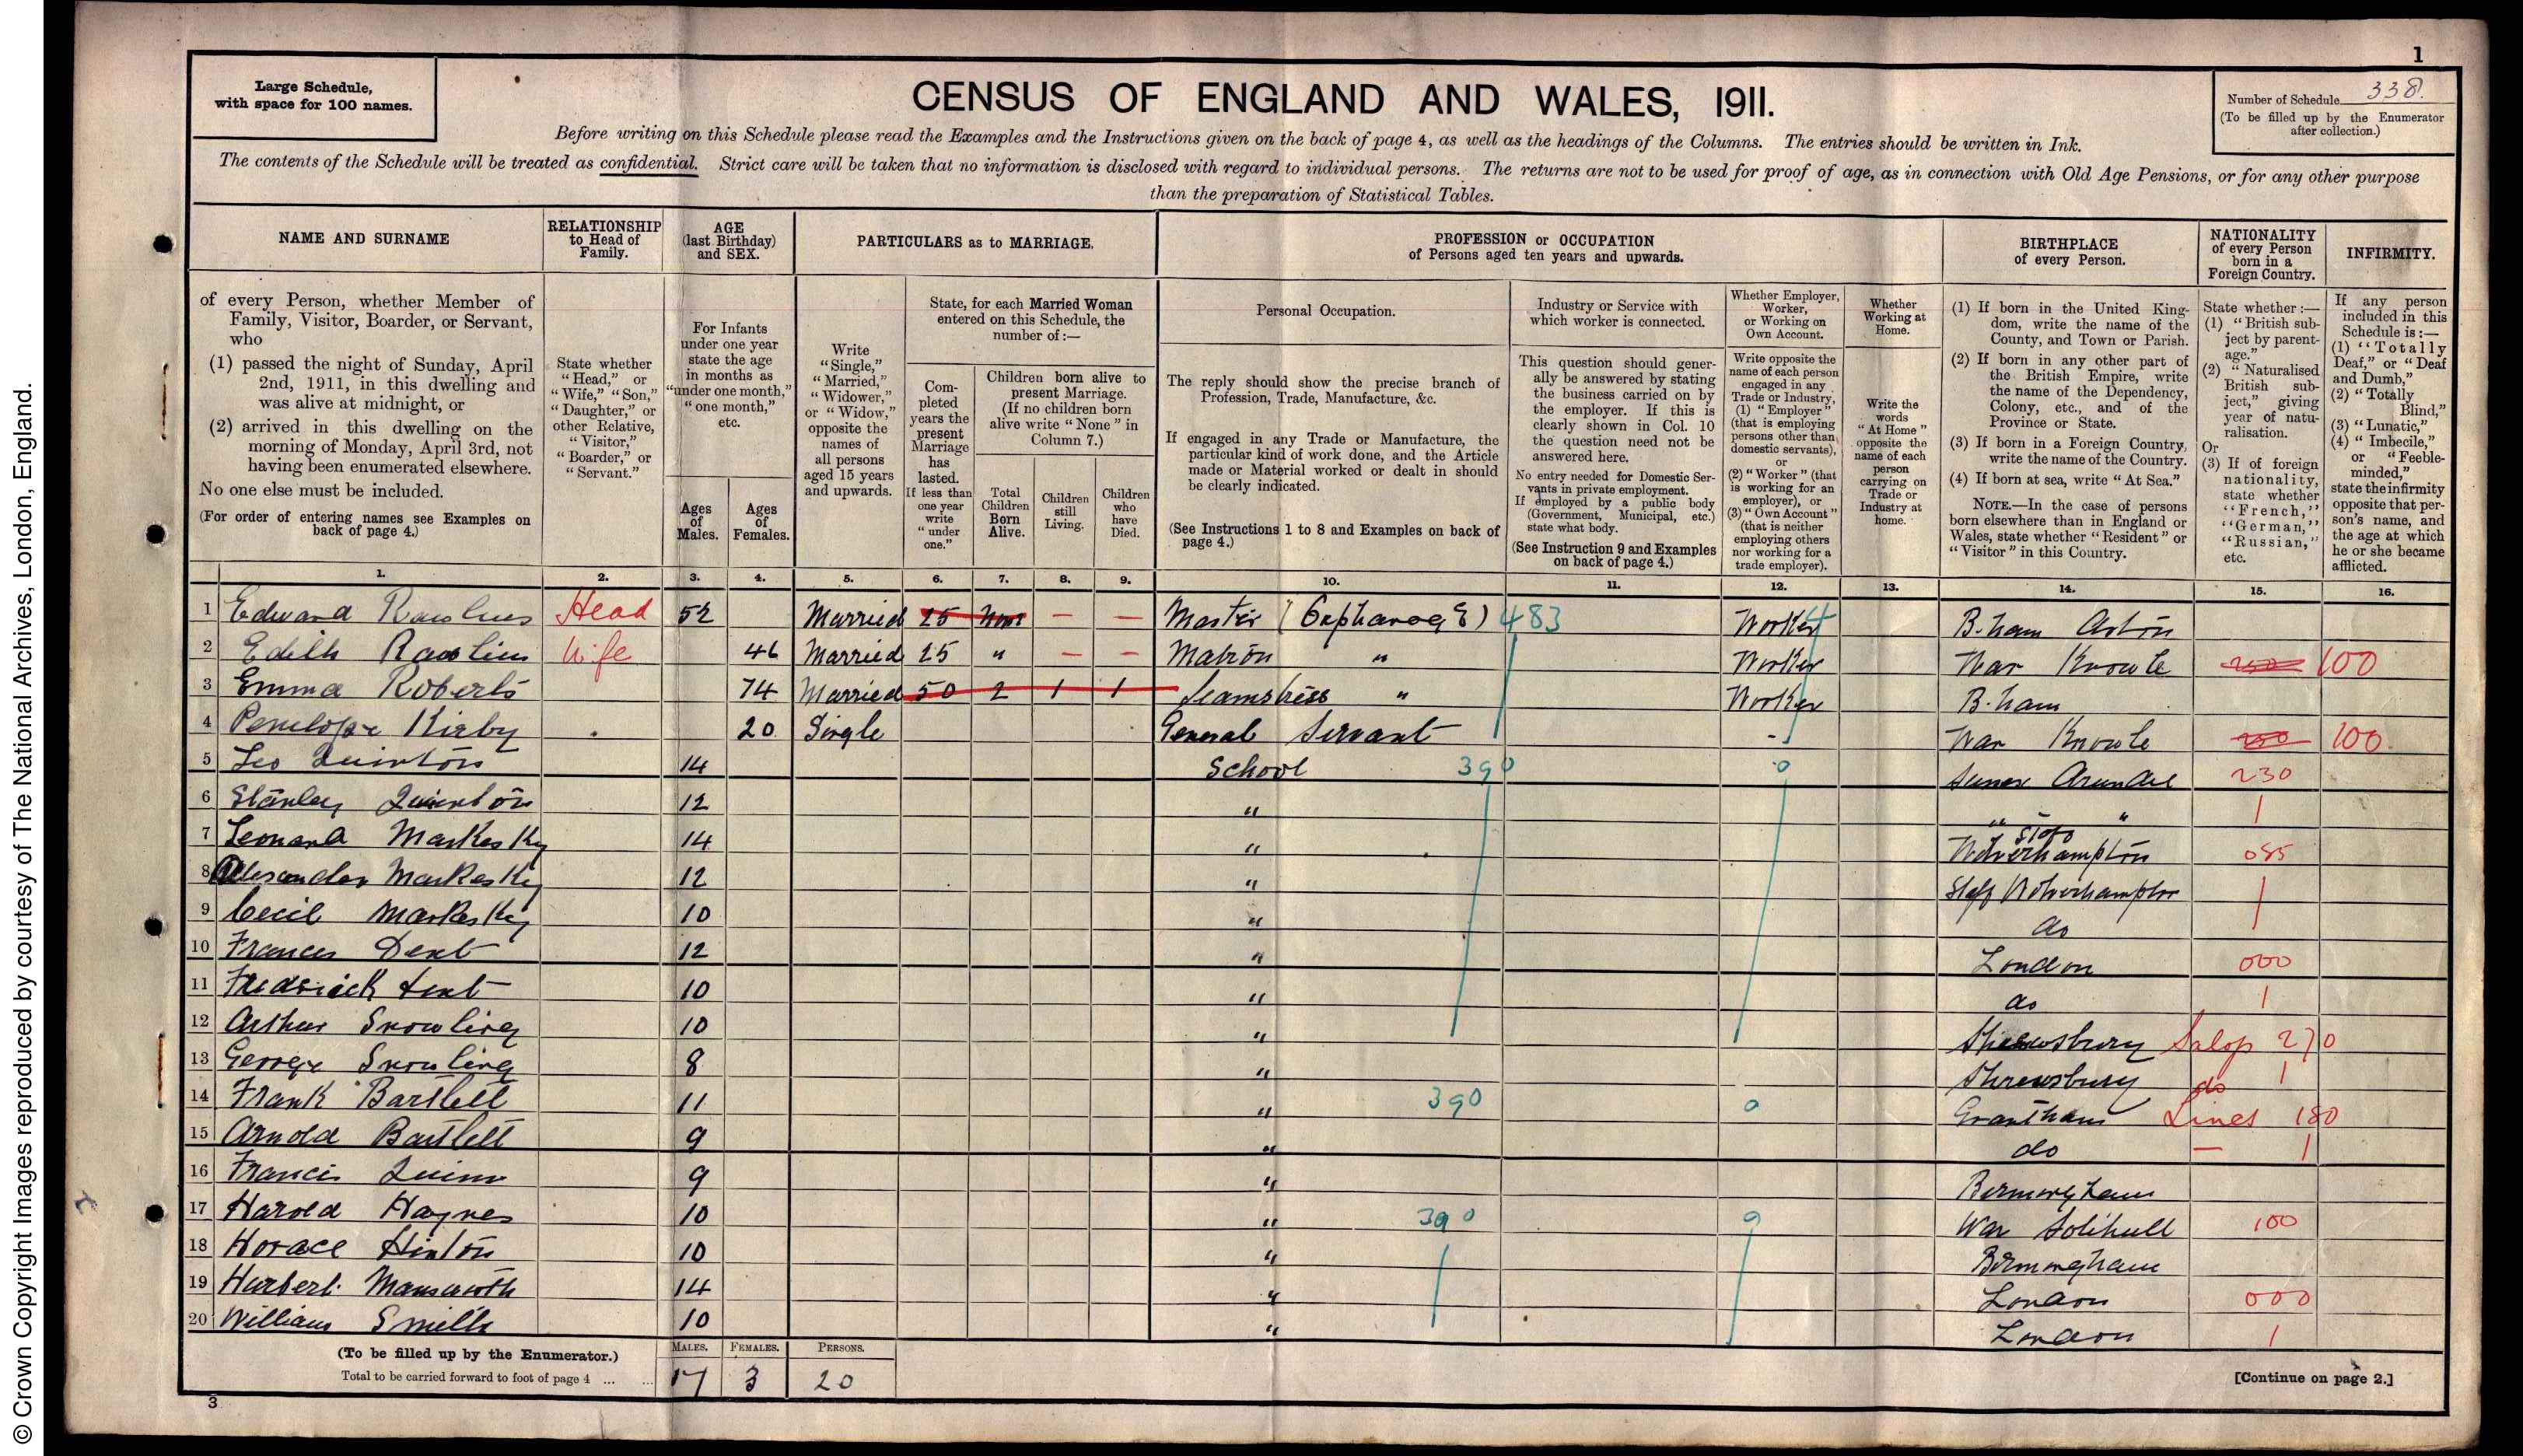 1
Large Schedule,
with space for 100 names.
CENSUS OF ENGLAND AND WALES, 1911.
Number of Schedule 338.
(To be filled up by the Enumerator
after collection.)
Before writing on this Schedule please read the Examples and the Instructions given on the back of page 4, as well as the headings of the Columns. The entries should be written in Ink.
The contents of the Schedule will be treated as confidential. Strict care will be taken that no information is disclosed with regard to individual persons. The returns are not to be used for proof of age, as in connection with Old Age Pensions, or for any other purpose
than the preparation of Statistical Tables.
NAME AND SURNAME
of every Person, whether Member of
Family, Visitor, Boarder, or Servant,
who
(1) passed the night of Sunday, April
2nd, 1911, in this dwelling and
was alive at midnight, or
(2) arrived in this dwelling on the
morning of Monday, April 3rd, not
having been enumerated elsewhere.
No one else must be included.
(For order of entering names see Examples on
back of page 4.)
RELATIONSHIP
to Head of
Family.
State whether
"Head," or
"Wife," "Son,"
"Daughter," or
other Relative,
"Visitor,"
"Boarder," or
"Servant."
AGE
(last Birthday)
and SEX.
For Infants
under one year
state the age
in months as
"under one month,"
"one month,"
etc.
Ages
of
Males.
Ages
of
Females.
PARTICULARS as to MARRIAGE.
Write
"Single,"
"Married,"
"Widower,"
or "Widow,"
opposite the
names of
all persons
aged 15 years
and upwards.
State, for each Married Woman
entered on this Schedule, the
number of :—
Com-
pleted
years the
present
Marriage
has
lasted.
If less than
one year
write
"under
one."
Children born alive to
present Marriage.
(If no children born
alive write "None" in
Column 7.)
Total
Children
Born
Alive.
Children
still
Living.
Children
who
have
Died.
PROFESSION or OCCUPATION
of Persons aged ten years and upwards.
Personal Occupation.
The reply should show the precise branch of
Profession, Trade, Manufacture, &c.
If engaged in any Trade or Manufacture, the
particular kind of work done, and the Article
made or Material worked or dealt in should
be clearly indicated.
(See Instructions 1 to 8 and Examples on back of
page 4.)
Industry or Service with
which worker is connected.
This question should gener-
ally be answered by stating
the business carried on by
the employer. If this is
clearly shown in Col. 10
the question need not be
answered here.
No entry needed for Domestic Ser-
vants in private employment.
If employed by a public body
(Government, Municipal, etc.)
state what body.
(See Instruction 9 and Examples
on back of page 4.)
Whether Employer,
Worker,
or Working on
Own Account.
Write opposite the
name of each person
engaged in any
Trade or Industry,
(1) "Employer"
(that is employing
persons other than
domestic servants),
or
(2) "Worker" (that
is working for an
employer), or
(3) "Own Account"
(that is neither
employing others
nor working for a
trade employer).
Whether
Working at
Home.
Write the
words
"At Home"
opposite the
name of each
person
carrying on
Trade or
Industry at
home.
BIRTHPLACE
of every Person.
(1) If born in the United King-
dom, write the name of the
County, and Town or Parish.
(2) If born in any other part of
the British Empire, write
the name of the Dependency,
Colony, etc., and of the
Province or State.
(3) If born in a Foreign Country,
write the name of the Country.
(4) If born at sea, write "At Sea."
NOTE.—In the case of persons
born elsewhere than in England or
Wales, state whether "Resident" or
"Visitor" in this Country.
NATIONALITY
of every Person
born in a
Foreign Country.
State whether :—
(1) "British sub-
ject by parent-
age."
(2) "Naturalised
British sub-
ject," giving
year of natu-
ralisation.
Or
(3) If of foreign
nationality,
state whether
"French,"
"German,"
"Russian,"
etc.
INFIRMITY.
If any person
included in this
Schedule is :—
(1) "Totally
Deaf," or "Deaf
and Dumb,"
(2) "Totally
Blind,"
(3) "Lunatic,"
(4) "Imbecile,"
or "Feeble-
minded,"
state the infirmity
opposite that per-
son's name, and
the age at which
he or she became
afflicted.
1. 2. 3. 4. 5. 6. 7. 8. 9. 10. 11. 12. 13. 14. 15. 16.
1 Edward Rawlins Head 52 Married 25 None — — Master (Orphanage) 483 Worker B.ham Aston
2 Edith Rawlins Wife 46 Married 25 " — — Matron " Worker War Knowle 100
3 Emma Roberts 74 Married 50 2 1 1 Seamstress " Worker B.ham
4 Penelope Kirby 20 Single General Servant - War Knowle 100
5 Leo Quinton 14 School 390 0 Sussex Arundel 230
6 Stanley Quinton 12 " " " 1
7 Leonard Markesky 14 " Staff Wolverhampton 085
8 Alexander Markesky 12 " Staff Wolverhampton 1
9 Cecil Markesky 10 " do
10 Frances Dent 12 " London 000
11 Fredrick Dent 10 " do 1
12 Arthur Snowling 10 " Shrewsbury Salop 270
13 George Snowling 8 " Shrewsbury do 1
14 Frank Bartlett 11 " 390 0 Grantham Lincs 180
15 Arnold Bartlett 9 " do — 1
16 Francis Quinn 9 " Birmingham
17 Harold Haynes 10 " 390 0 War Solihull 100
18 Horace Hinton 10 " Birmingham
19 Harbert Mansworth 14 " London 000
20 William Smith 10 " London 1
(To be filled up by the Enumerator.)
Total to be carried forward to foot of page 4 ... ...
MALES. FEMALES. PERSONS.
17 3 20
[Continue on page 2.]
3
© Crown Copyright Images reproduced by courtesy of The National Archives, London, England.